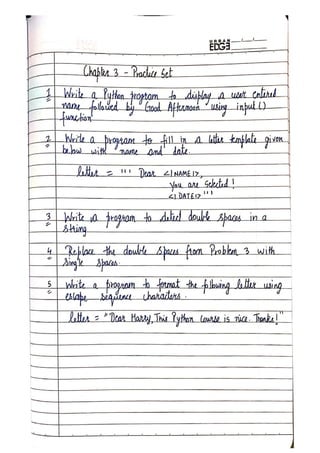 URBAN
EDGE
Chapter 3 - Practice Set
1 Write a Python program to display a user entered
name followed by Good Afternoon using input ()
function
2 Write a program to fill in a letter template given
below with name and date.
letter = ''' Dear <|NAME|>,
You are Selected !
<|DATE|> '''
3 Write a program to detect double spaces in a
string
4 Replace the double spaces from Problem 3 with
single spaces.
5 Write a program to format the following letter using
escape sequence characters.
letter = "Dear Harry, This Python course is nice. Thanks!"